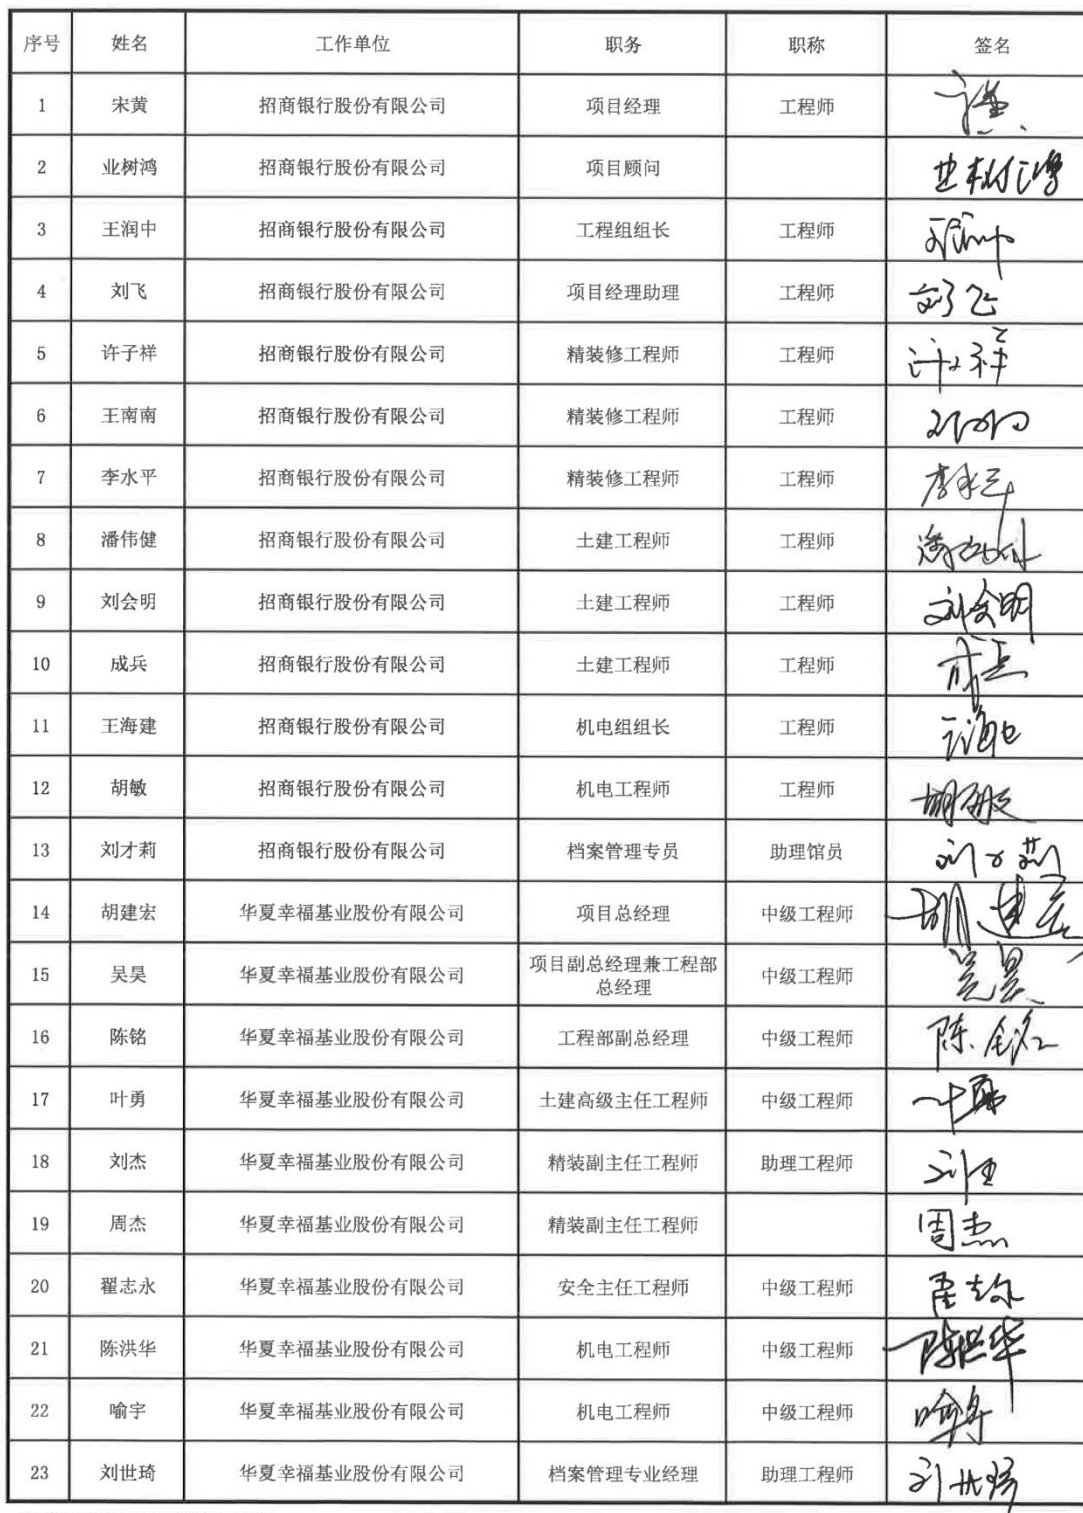 序号 姓名 工作单位 职务 职称 签名
1 宋黄 招商银行股份有限公司 项目经理 工程师
2 业树鸿 招商银行股份有限公司 项目顾问 业树鸿
3 王润中 招商银行股份有限公司 工程组组长 工程师 王润中
4 刘飞 招商银行股份有限公司 项目经理助理 工程师 刘飞
5 许子祥 招商银行股份有限公司 精装修工程师 工程师 许子祥
6 王南南 招商银行股份有限公司 精装修工程师 工程师
7 李水平 招商银行股份有限公司 精装修工程师 工程师 李水平
8 潘伟健 招商银行股份有限公司 土建工程师 工程师 潘伟健
9 刘会明 招商银行股份有限公司 土建工程师 工程师 刘会明
10 成兵 招商银行股份有限公司 土建工程师 工程师 成兵
11 王海建 招商银行股份有限公司 机电组组长 工程师
12 胡敏 招商银行股份有限公司 机电工程师 工程师 胡敏
13 刘才莉 招商银行股份有限公司 档案管理专员 助理馆员 刘才莉
14 胡建宏 华夏幸福基业股份有限公司 项目总经理 中级工程师 胡建宏
15 吴昊 华夏幸福基业股份有限公司 项目副总经理兼工程部 中级工程师 吴昊
总经理
16 陈铭 华夏幸福基业股份有限公司 工程部副总经理 中级工程师 陈铭
17 叶勇 华夏幸福基业股份有限公司 土建高级主任工程师 中级工程师 叶勇
18 刘杰 华夏幸福基业股份有限公司 精装副主任工程师 助理工程师 刘杰
19 周杰 华夏幸福基业股份有限公司 精装副主任工程师 周杰
20 翟志永 华夏幸福基业股份有限公司 安全主任工程师 中级工程师 翟志永
21 陈洪华 华夏幸福基业股份有限公司 机电工程师 中级工程师 陈洪华
22 喻宇 华夏幸福基业股份有限公司 机电工程师 中级工程师 喻宇
23 刘世琦 华夏幸福基业股份有限公司 档案管理专业经理 助理工程师 刘世琦